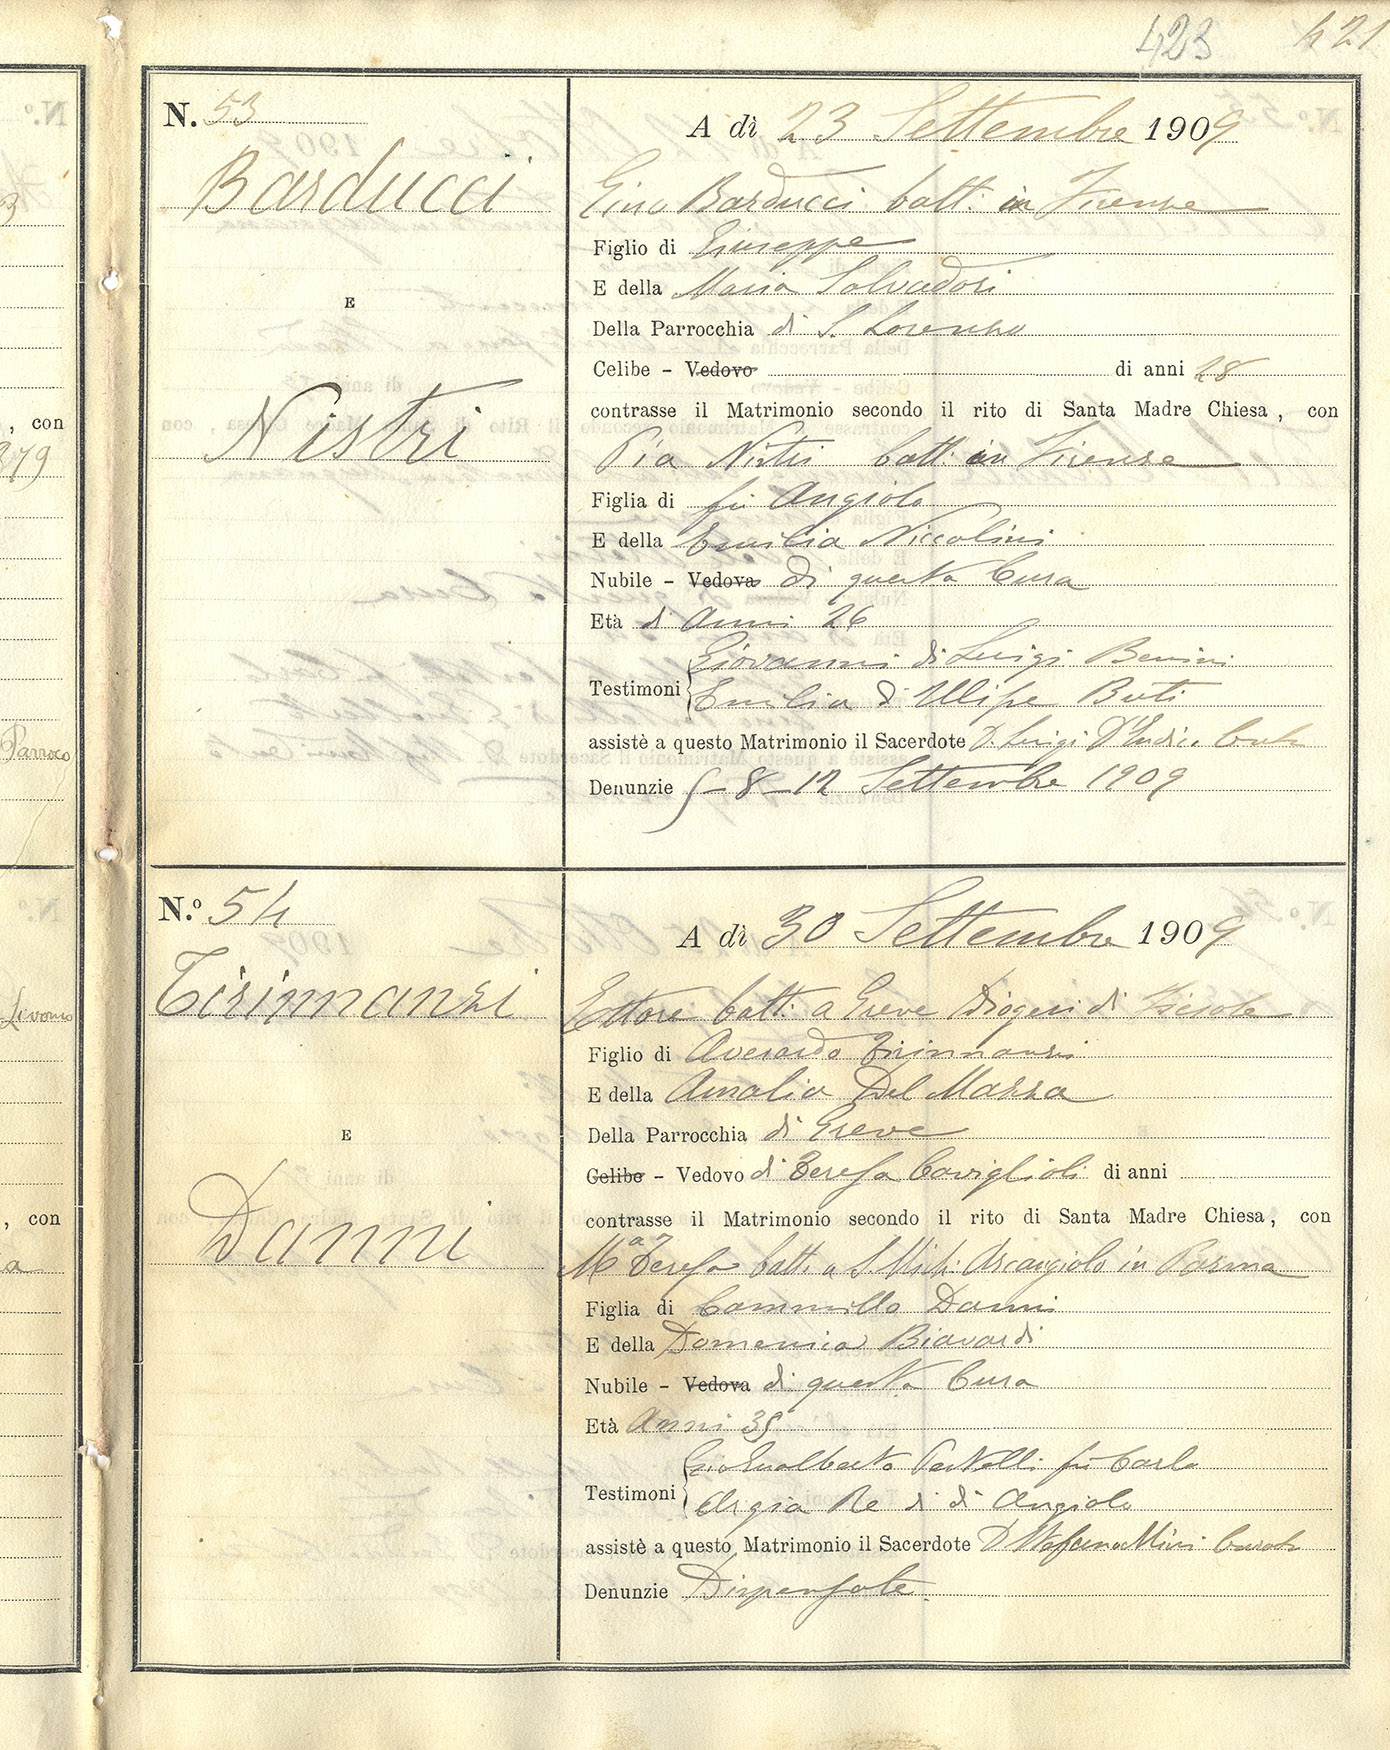 423 421
N. 53
Barducci
E
Nistri
A dì 23 Settembre 1909
Gino Barducci batt. in Firenze
Figlio di Giuseppe
E della Maria Salvadori
Della Parrocchia di S. Lorenzo
Celibe - Vedovo di anni 28
contrasse il Matrimonio secondo il rito di Santa Madre Chiesa, con
Pia Nistri batt. in Firenze
Figlia di fu Angiolo
E della Emilia Niccolini
Nubile - Vedova di questa Cura
Età di Anni 26
Giovanni di Luigi Benini
Testimoni
Emilia di Ulisse Buti
assistè a questo Matrimonio il Sacerdote D. Luigi
Denunzie 5 - 8 - 12 Settembre 1909
N.º 54
Tirinnanzi
E
Danni
A dì 30 Settembre 1909
Ettore batt. a Greve Diogesi di Fiesole
Figlio di Averardo Tirinnanzi
E della Amalia Del Mazza
Della Parrocchia di Greve
Celibe - Vedovo di Teresa Caviglioli di anni
contrasse il Matrimonio secondo il rito di Santa Madre Chiesa, con
Mª Teresa batt. a S. Mich. Arcangiolo in Parma
Figlia di Cammillo Danni
E della Domenica Biavardi
Nubile - Vedova di questa Cura
Età Anni 35
Gio Gualberto Pratelli fu Carlo
Testimoni
Argia Re di Angiolo
assistè a questo Matrimonio il Sacerdote D Stefano Mini Curato
Denunzie Dispensate
, con
379
Parroco
, con